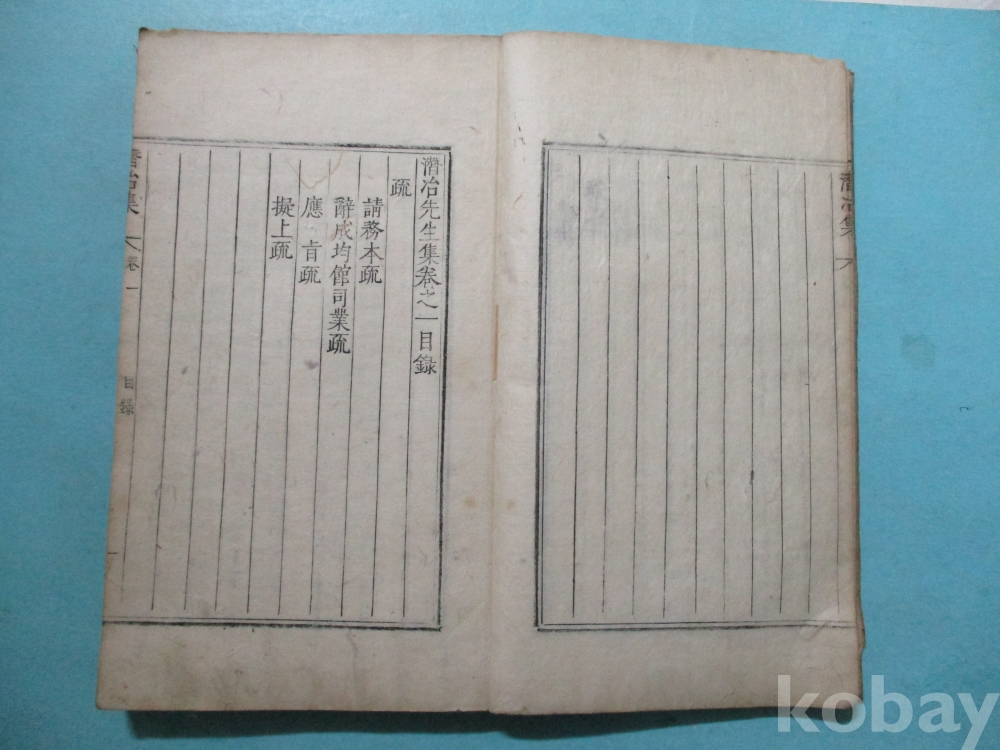 潛冶集
潛冶先生集卷之一目錄
疏
請務本疏
辭成均館司業疏
應 旨疏
擬上疏
潛冶集
卷一
目錄
一
kobay